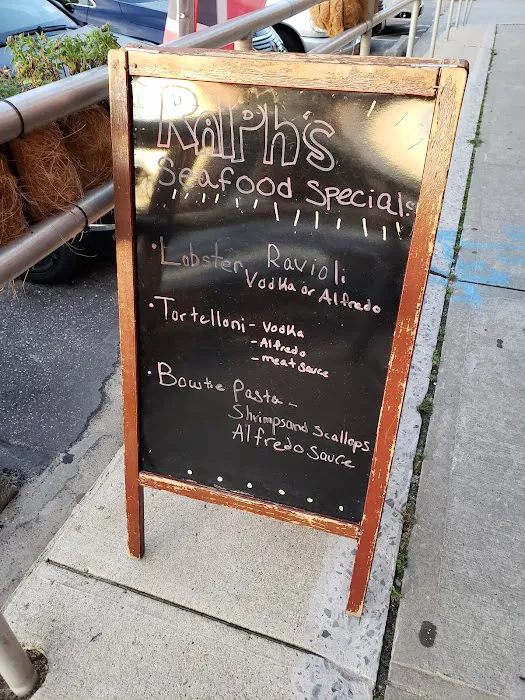 Ralph's
Seafood Specials
• Lobster Ravioli
Vodka or Alfredo
• Tortelloni - Vodka
- Alfredo
- meat sauce
• Bowtie Pasta -
Shrimps and Scallops
Alfredo Sauce